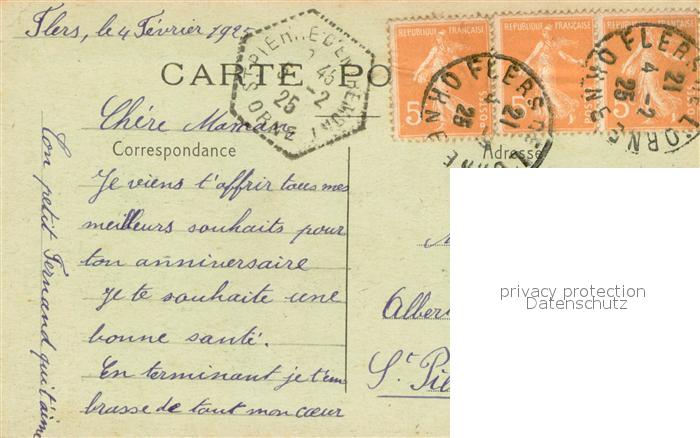 Flers, le 4 Février 1925
CARTE PO
RÉPUBLIQUE FRANÇAISE
RÉPUBLIQUE FRANÇAISE
RÉPUBLIQUE FRANÇAISE
POSTES
POSTES
5c
5c
5c
ST PIERRE
45
-2
25
ORNE
FLERS
21
4
25
ORNE
FLERS
21
4-2
25
ORNE
Correspondance
Adresse
Chère Maman
Je viens t'offrir tous mes
meilleurs souhaits pour
ton anniversaire
Je te souhaite une
bonne santé.
En terminant je t'em
brasse de tout mon cœur
Ton petit Fernand qui t'aime
Alber
St Pi
privacy protection
Datenschutz